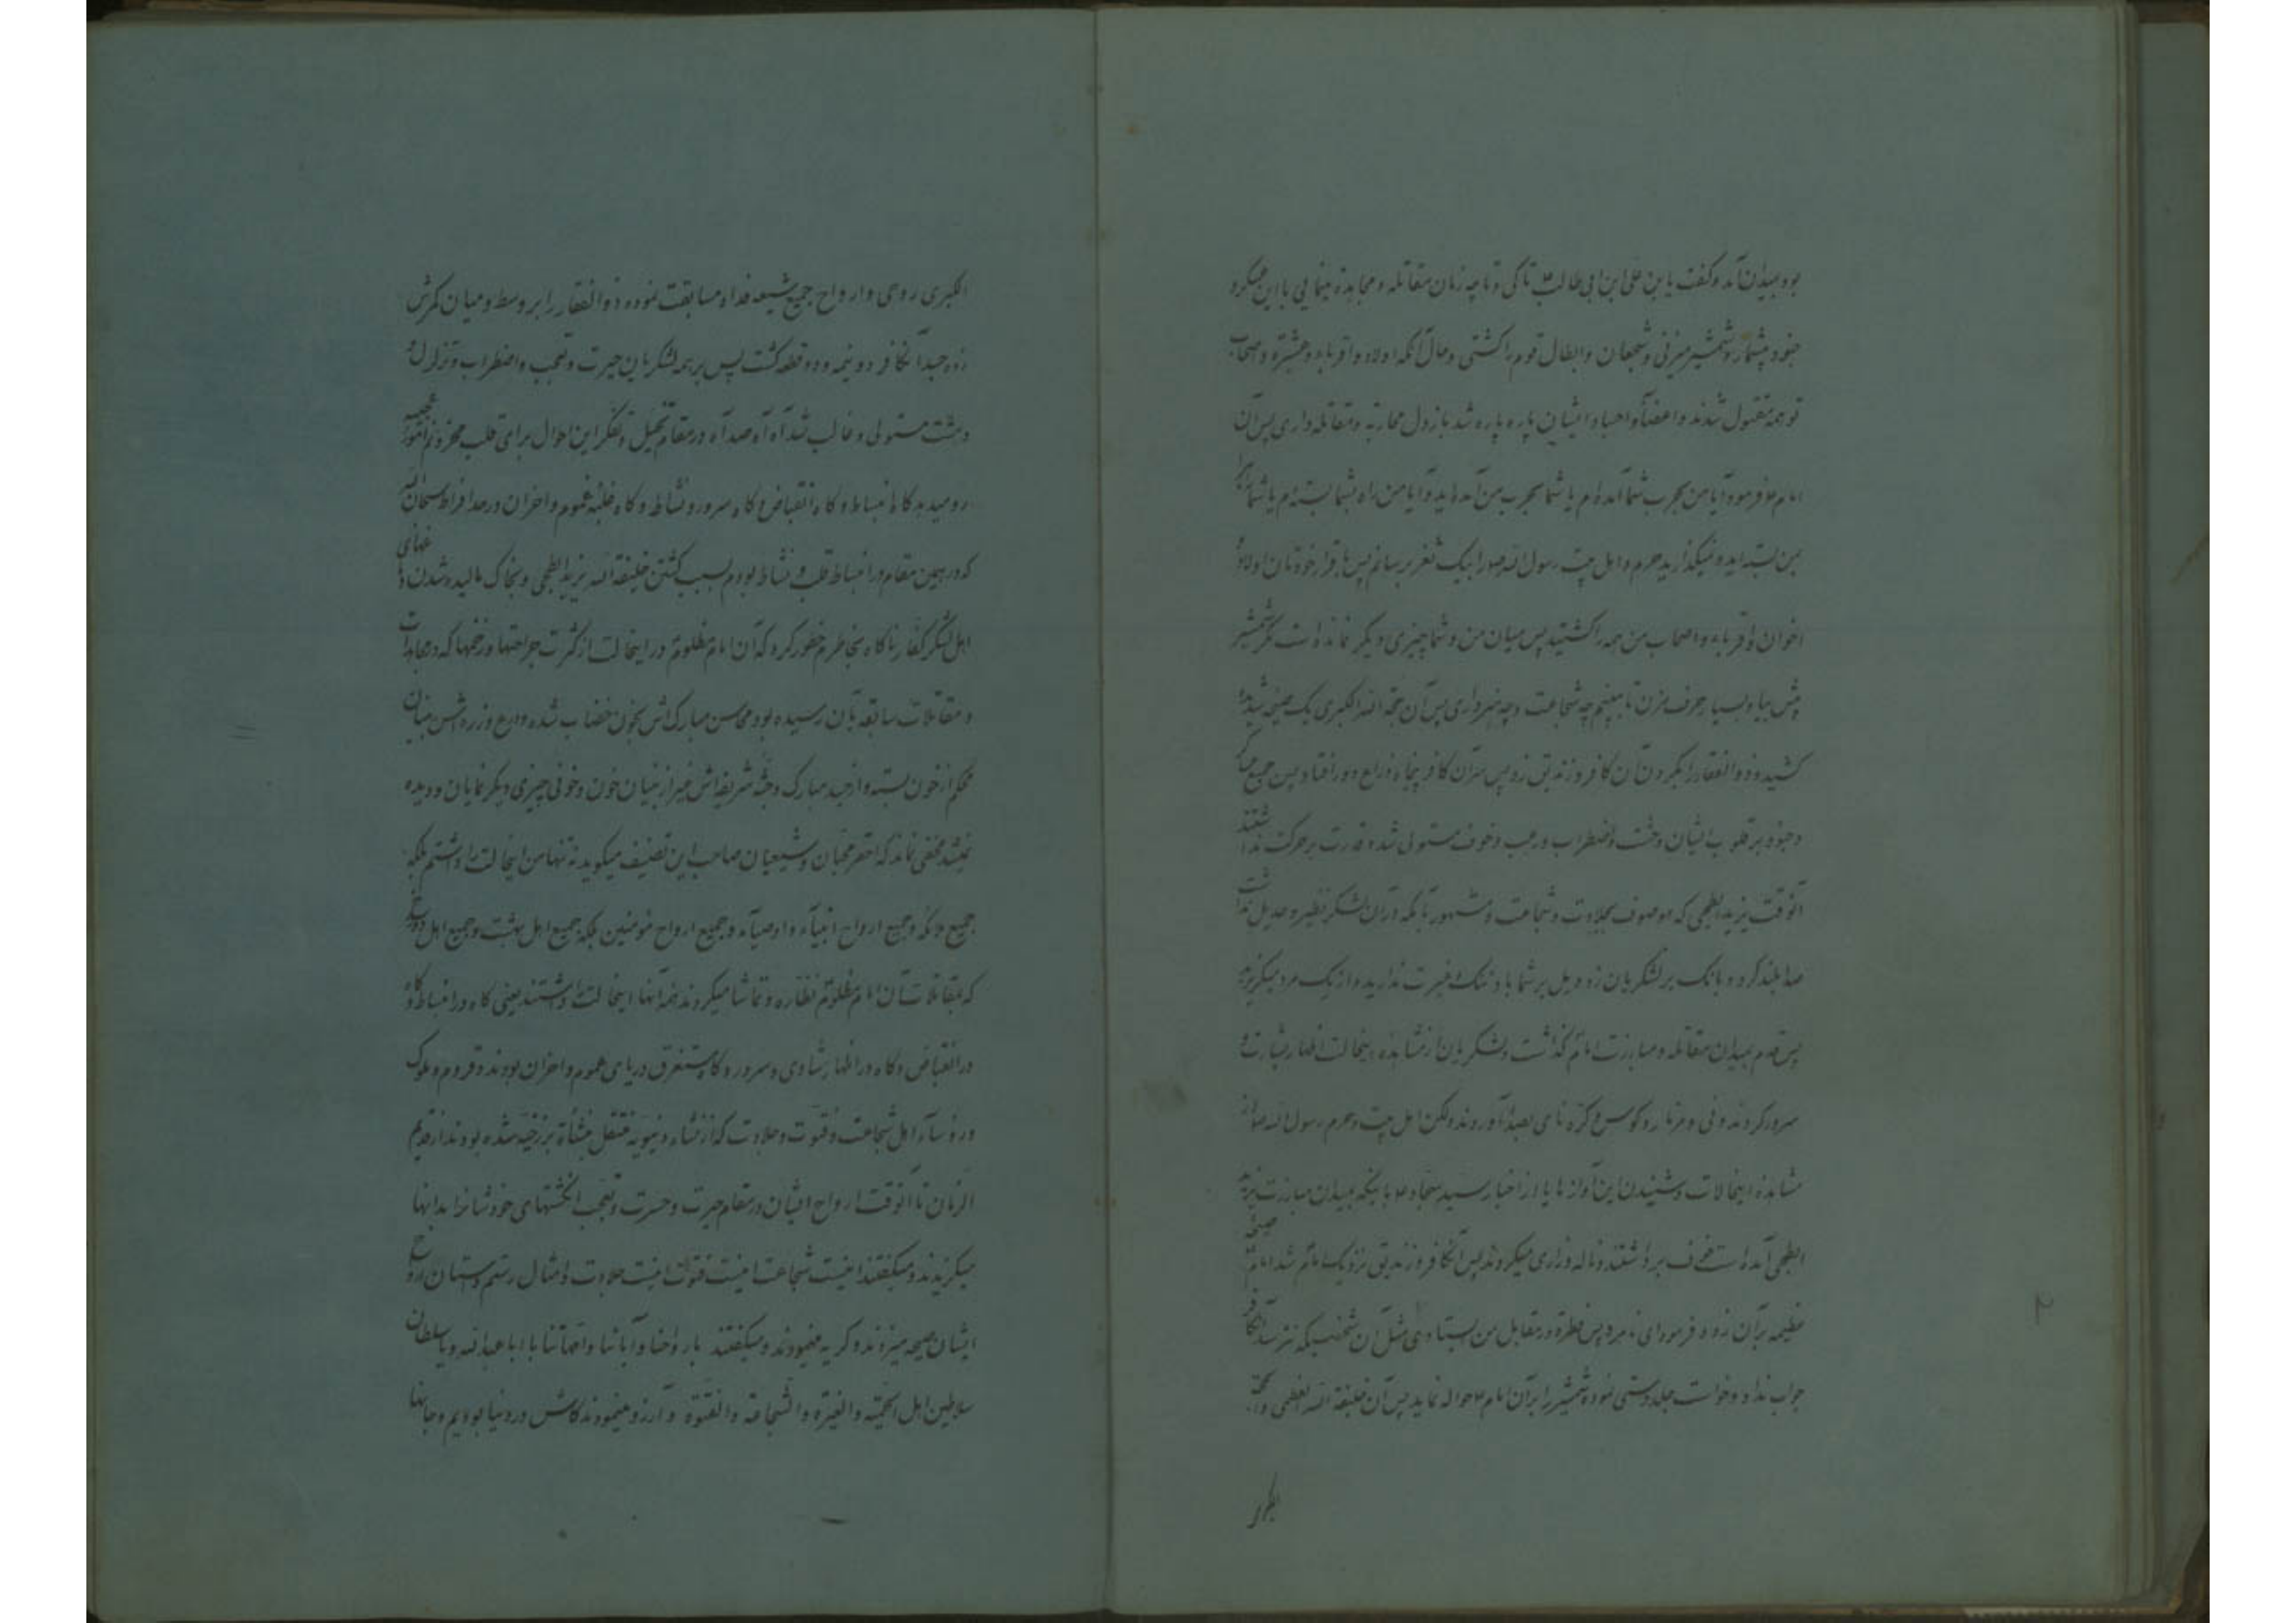 بود بمیدان آمد و گفت یا بن علی ابن ابی طالب ع تا کی و تا چه زمان مقاتله و مجاهده مینمایی با این عسکر و
جنود بیشمار و شمشیر میزنی و شجعان و ابطال قوم را کشتی و حال آنکه اولاد و اقرباء و عشیره و اصحاب
تو همه مقتول شدند و اعضآء و اجساد ایشان پاره پاره شد باز دل محاربه و مقاتله داری پس آن
امام ع فرمود آیا من بحرب شما آمده‌ام یا شما بحرب من آمده‌اید و آیا من راه بشما بسته‌ام یا شما راه
بمن بسته‌اید و نمیگذارید حرم و اهل بیت رسول الله ص را بیک ثغر برسانم پس باقرار خودتان اولاد و
اخوان و اقرباء و اصحاب من همه را کشتید پس میان من و شما چیزی دیگر نمانده است مگر شمشیر
پیش بیا و بسیار حرف مزن تا ببینم چه شجاعت و چه هنر داری پس آن حجة الله الکبری یک صیحه شدیده
کشید و ذو الفقار را بگردن آن کافر و زندیق زد پس سر آن کافر پنجاه ذراع دور افتاد پس جمیع عساکر
و جنود بر قلوب ایشان وحشت و اضطراب و رعب و خوف مستولی شد و قدرت بر حرکت نداشتند
آنوقت یزید ابطحی که موصوف بجلادت و شجاعت و مشهور بآنکه در آن لشکر نظیر و عدیل نداشت
صدا بلند کرد و بانک بر لشکریان زد و ویل بر شما باد ننک و غیرت ندارید و از یک مرد میگریزید
پس قدم بمیدان مقاتله و مبارزت امام گذاشت و لشکریان از مشاهده اینحالت اظهار بشارت و
سرور کردند و نی و مزمار و کوس و کره نای بصدا آوردند ولکن اهل بیت و حرم رسول الله ص از
مشاهده اینحالات و شنیدن این آوازها یا از اخبار سید سجاد ع باینکه بمیدان مبارزت یزید
ابطحی آمده است برداشتند و ناله و زاری میکردند پس آنکافر و زندیق نزدیک امام شد امام صیحه
عظیمه بر آن زد و فرمود ای نامرد پس خطره در مقابل من ایستاده‌ای مثل آن شخصیکه نترسد آنکافر
جواب نداد و خواست جلددستی نموده شمشیر را بر آن امام ع حواله نماید پس آن خلیفة الله العظمی و الحجة
الکبری
الکبری روحی و ارواح جمیع شیعه فداه مسابقت نموده ذو الفقار را بر وسط و میان کمرش
زده جسد آنکافر دو نیمه و دو قطعه گشت پس بر همه لشکریان حیرت و تعجب و اضطراب و تزلزل و
دهشت مستولی و غالب شد آه آه صد آه در مقام تخیل و تفکر این احوال برای قلب محزونم امور عجیبه
رو میدهد گاه انبساط و گاه انقباض و گاه سرور و نشاط و گاه غلبه غموم و احزان در حد افراط سبحان الله
که در همین مقام در انبساط قلب و نشاط بودم بسبب کشتن خلیفة الله یزید ابطحی و بخاک مالیده شدن دماغهای
اهل لشکر کفار ناگاه بخاطرم خطور کرد که آن امام مظلوم در اینحالت از کثرت جراحتها و زخمها که در مجاهدات
و مقاتلات سابقه بآن رسیده بود محاسن مبارک اش بخون خضاب شده و درع و زره اش بنیان
محکم از خون بسته و از جسد مبارک و جثه شریفه اش غیر از بنیان خون و خونی چیزی دیگر نمایان و دیده
نمیشد مخفی نماند که احقر محبان و شیعیان صاحب این تصنیف میگوید نه تنها من اینحالت را داشتم بلکه
جمیع ملائکه و جمیع ارواح انبیآء و اوصیآء و جمیع ارواح مؤمنین بلکه جمیع اهل بهشت و جمیع اهل دوزخ
که بمقاتلات آن امام مظلوم نظاره و تماشا میکردند همه آنها اینحالت داشتند یعنی گاه در انبساط و گاه
در انقباض و گاه در اظهار شادی و سرور و گاه مستغرق دریای هموم و احزان بودند و قروم و ملوک
و رؤسآء اهل شجاعت و فتوت و جلادت که از نشاء دنیویه منتقل بنشأة برزخیه شده بودند از قدیم
الزمان تا آنوقت ارواح ایشان در مقام حیرت و حسرت و تعجب انگشتهای خودشانرا بدانها
میگزیدند و میگفتند اینست شجاعت اینست فتوت اینست جلادت و امثال رستم دستان ارواح
ایشان صیحه میزدند و گریه مینمودند و میگفتند بارواحنا و آبائنا و امهاتنا یا ابا عبد الله و یا سلطان
سلاطین اهل الحمیة و الغیرة و الشجاعة و الفتوة و آرزو مینمودند کاش در دنیا بودیم و جانها